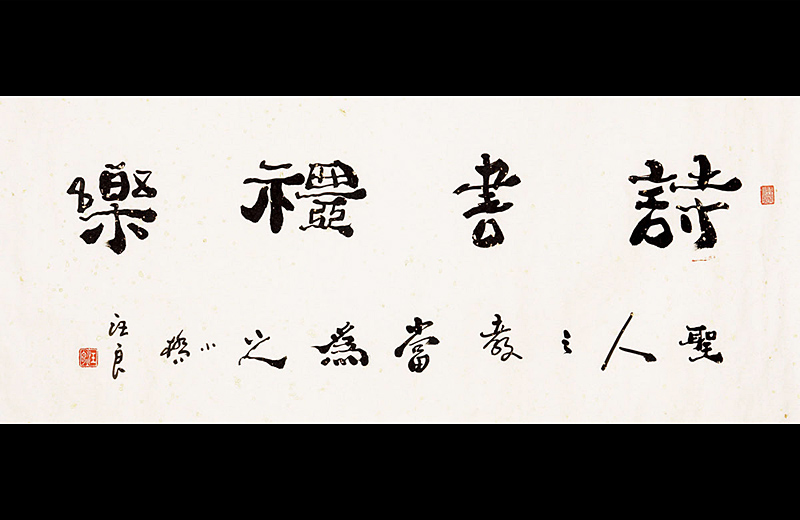 詩書禮樂
聖人之教當為先
小
汪良